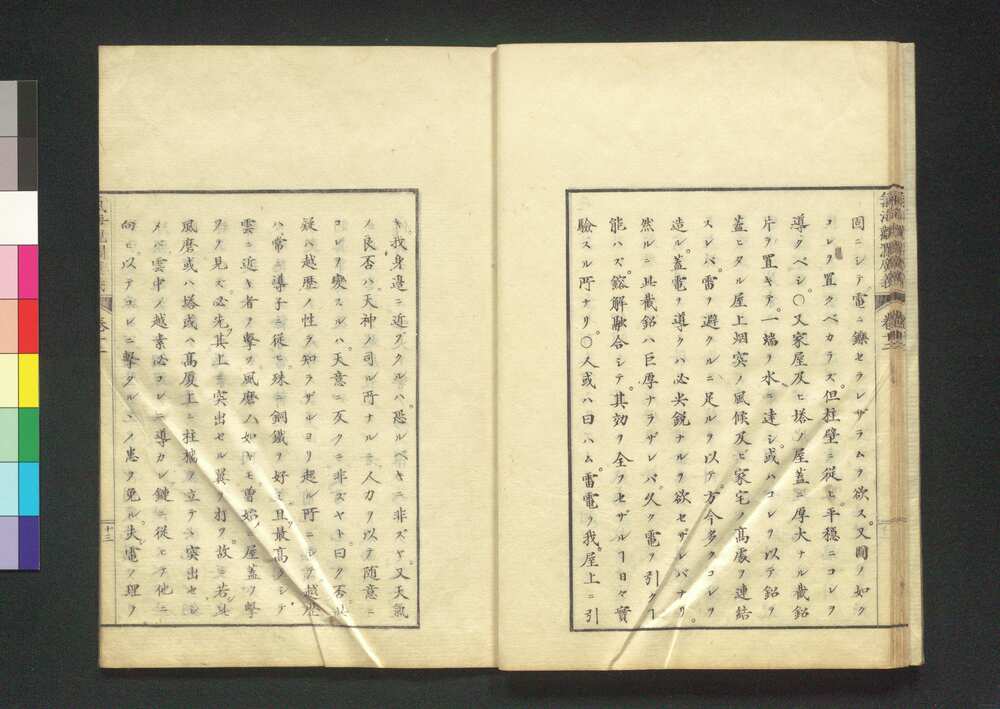 固ニシテ電ニ鑠セラレザラムヲ欲ス。又図ノ如ク
コレヲ置クベカラズ。但柱壁ニ従ヒ平穏ニコレヲ
導クベシ○又家屋及ヒ塔ノ屋蓋ニ厚大ナル截鉛
片ヲ置キテ。一端ヲ水ニ達シ。或ハコレヲ以テ鉛ヲ
蓋ヒタル屋上烟突ノ風候及ビ家宅ノ高處ヲ連結
スレバ。雷ヲ避クルニ足ルヲ以テ。方今多クコレヲ
造ル。蓋電ヲ導クハ必尖鋭ナルヲ欲セザレバナリ。
然ルニ其截鉛ハ巨厚ナラザレバ。久ク電ヲ引クヿ
能ハズ。鎔解融合シテ。其効ヲ全フセザルヿ日々實
驗スル所ナリ。○人或ハ曰ハム雷電ヲ我屋上ニ引
キ我身邊ニ近ヅクルハ。恐ルベキニ非ズヤ。又天氣
ノ良否ハ。天神ノ司ル所ナルニ人力ヲ以テ随意ニ
コレヲ變スルハ。天意ニ反クニ非ズヤト。曰ク否其
疑ハ越歴ノ性ヲ知ラザルヨリ起ル所ニシテ越歴
ハ常ニ導子ニ從ヒ。殊ニ銅鐵ヲ好ミ。且最高ノシテ
雲ニ近キ者ヲ擊ツ。風磨ノ如キモ曽始ノ屋蓋ヲ擊
ヲヲ見ズ。必先其上ニ突出セル翼ヲ打ツ。故ニ若其
風磨或ハ塔或ハ高厦上ニ柱檣ヲ立テヽ突出セシ
メバ。雲中ノ越素必コレニ導カレ。鏈ニ従ヒテ他ニ
向ヒ。以テコレニ擊タルヽノ患ヲ免ル。夫電ノ理ヲ
十三